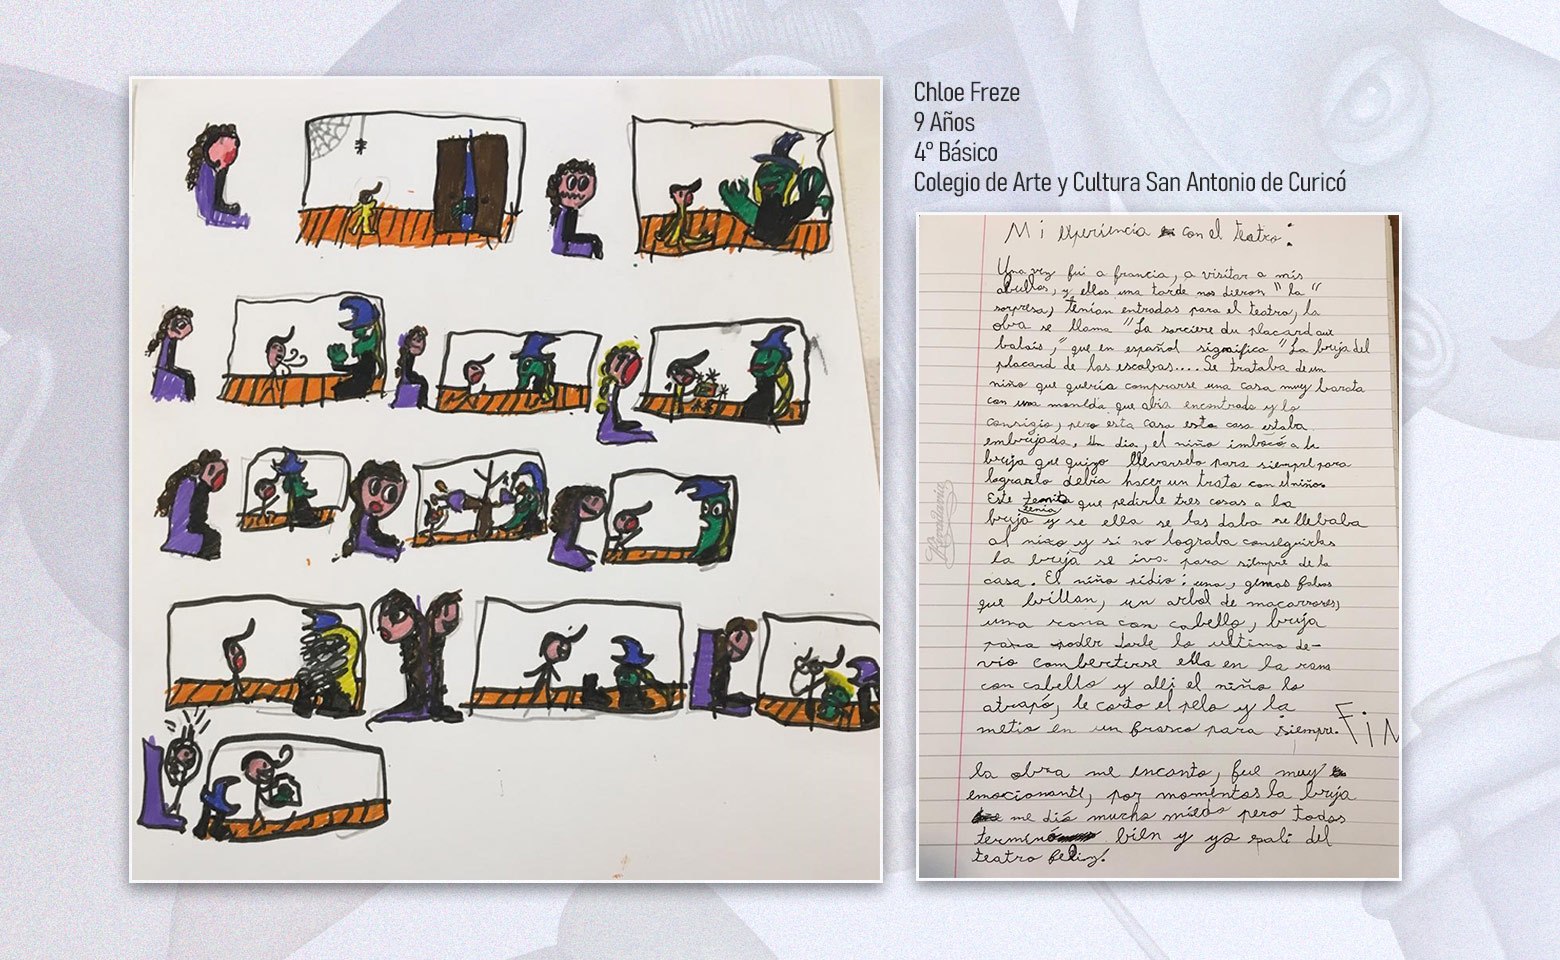 Chloe Freze
9 Años
4° Básico
Colegio de Arte y Cultura San Antonio de Curicó
Mi experiencia con el teatro:
Una vez fui a francia, a visitar a mis
abuelos, y ellos una tarde nos dieron "la"
sorpresa, tenían entradas para el teatro, la
obra se llama "La sorciere du placard aux
balais," que en español significa "La bruja del
placard de las escobas.... Se trataba de un
niño que quería comprarse una casa muy barata
con una moneda que abia encontrado y lo
consigio, pero esta casa esta casa estaba
embrujada. Un dia, el niño imbocó a la
bruja que quizo llevarselo para siempre para
lograrlo debía hacer un trato con el niño.
Este tenia que pedirle tres cosas a la
bruja y se ella se las daba se llebaba
al niño y si no lograba conseguirlas
la bruja se iva para siempre de la
casa. El niño pidio: una, gemas falsas
que brillan, un arbol de macarrones,
una rana con cabello, bruja
para poder darle lo ultimo de-
vio combertirse ella en la rana
con cabello y alli el niño la
atrapó, le corto el pelo y la
metio en un frasco para siempre. FIN
la obra me encanto, fue muy
emocionante, por momentos la bruja
me dió mucho miedo pero todos
terminó bien y yo sali del
teatro feliz!